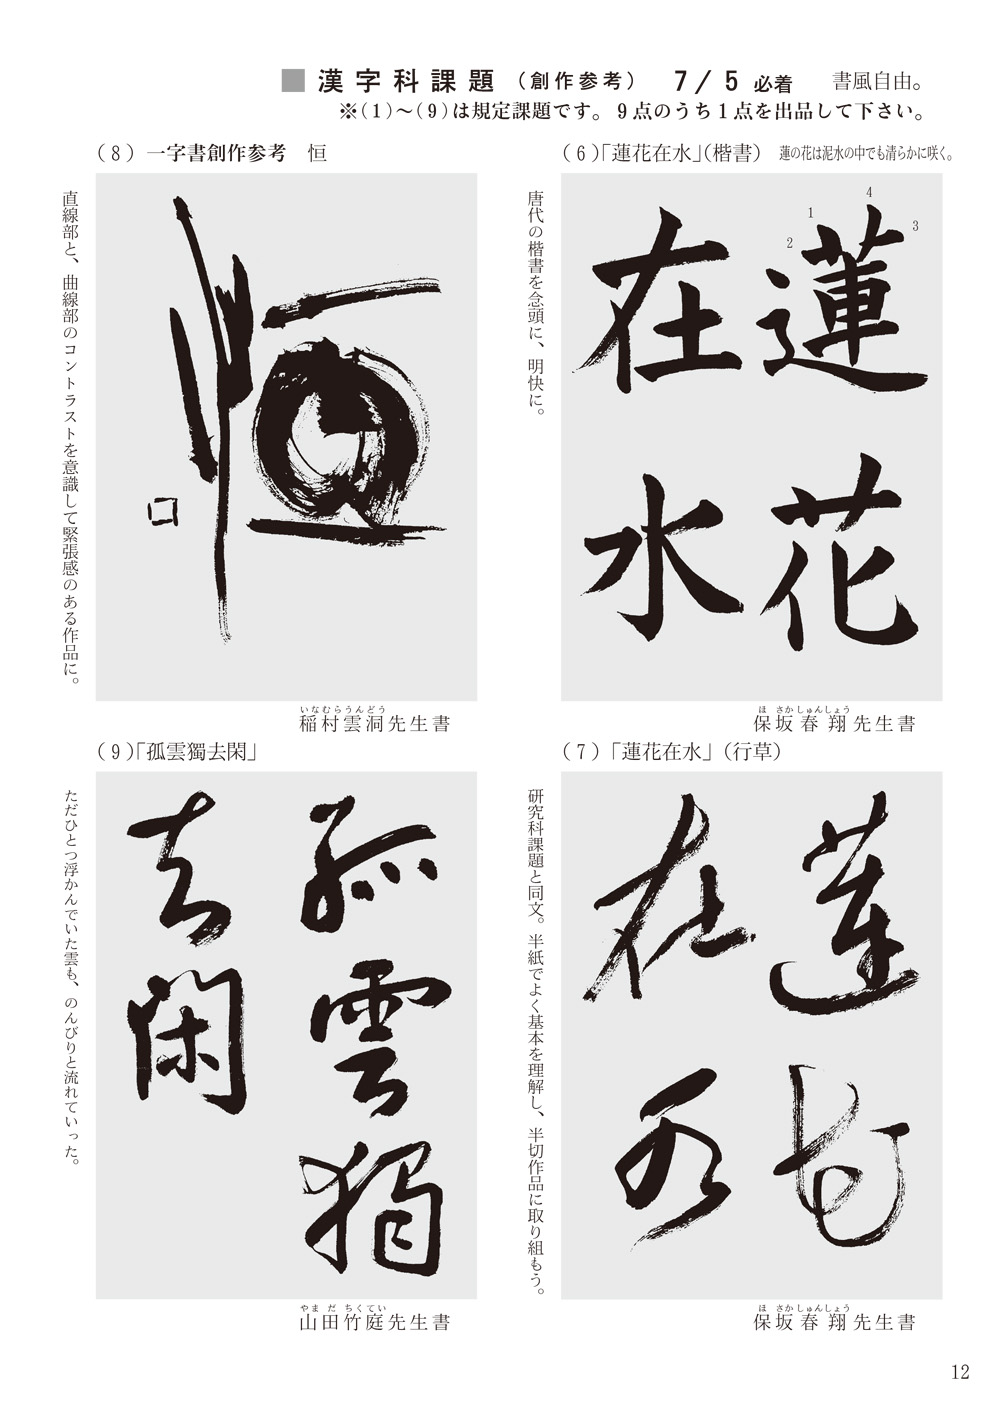 ■ 漢字科課題（創作参考） 7/5 必着 書風自由。
※（1）～（9）は規定課題です。9点のうち1点を出品して下さい。
（6）「蓮花在水」（楷書） 蓮の花は泥水の中でも清らかに咲く。
唐代の楷書を念頭に、明快に。
1
2
3
4
蓮花
在水
ほさかしゅんしょう
保坂春翔先生書
（7）「蓮花在水」（行草）
研究科課題と同文。半紙でよく基本を理解し、半切作品に取り組もう。
蓮花
在水
ほさかしゅんしょう
保坂春翔先生書
（8）一字書創作参考 恒
直線部と、曲線部のコントラストを意識して緊張感のある作品に。
恒
いなむらうんどう
稲村雲洞先生書
（9）「孤雲獨去閑」
ただひとつ浮かんでいた雲も、のんびりと流れていった。
孤雲獨
去閑
やまだちくてい
山田竹庭先生書
12